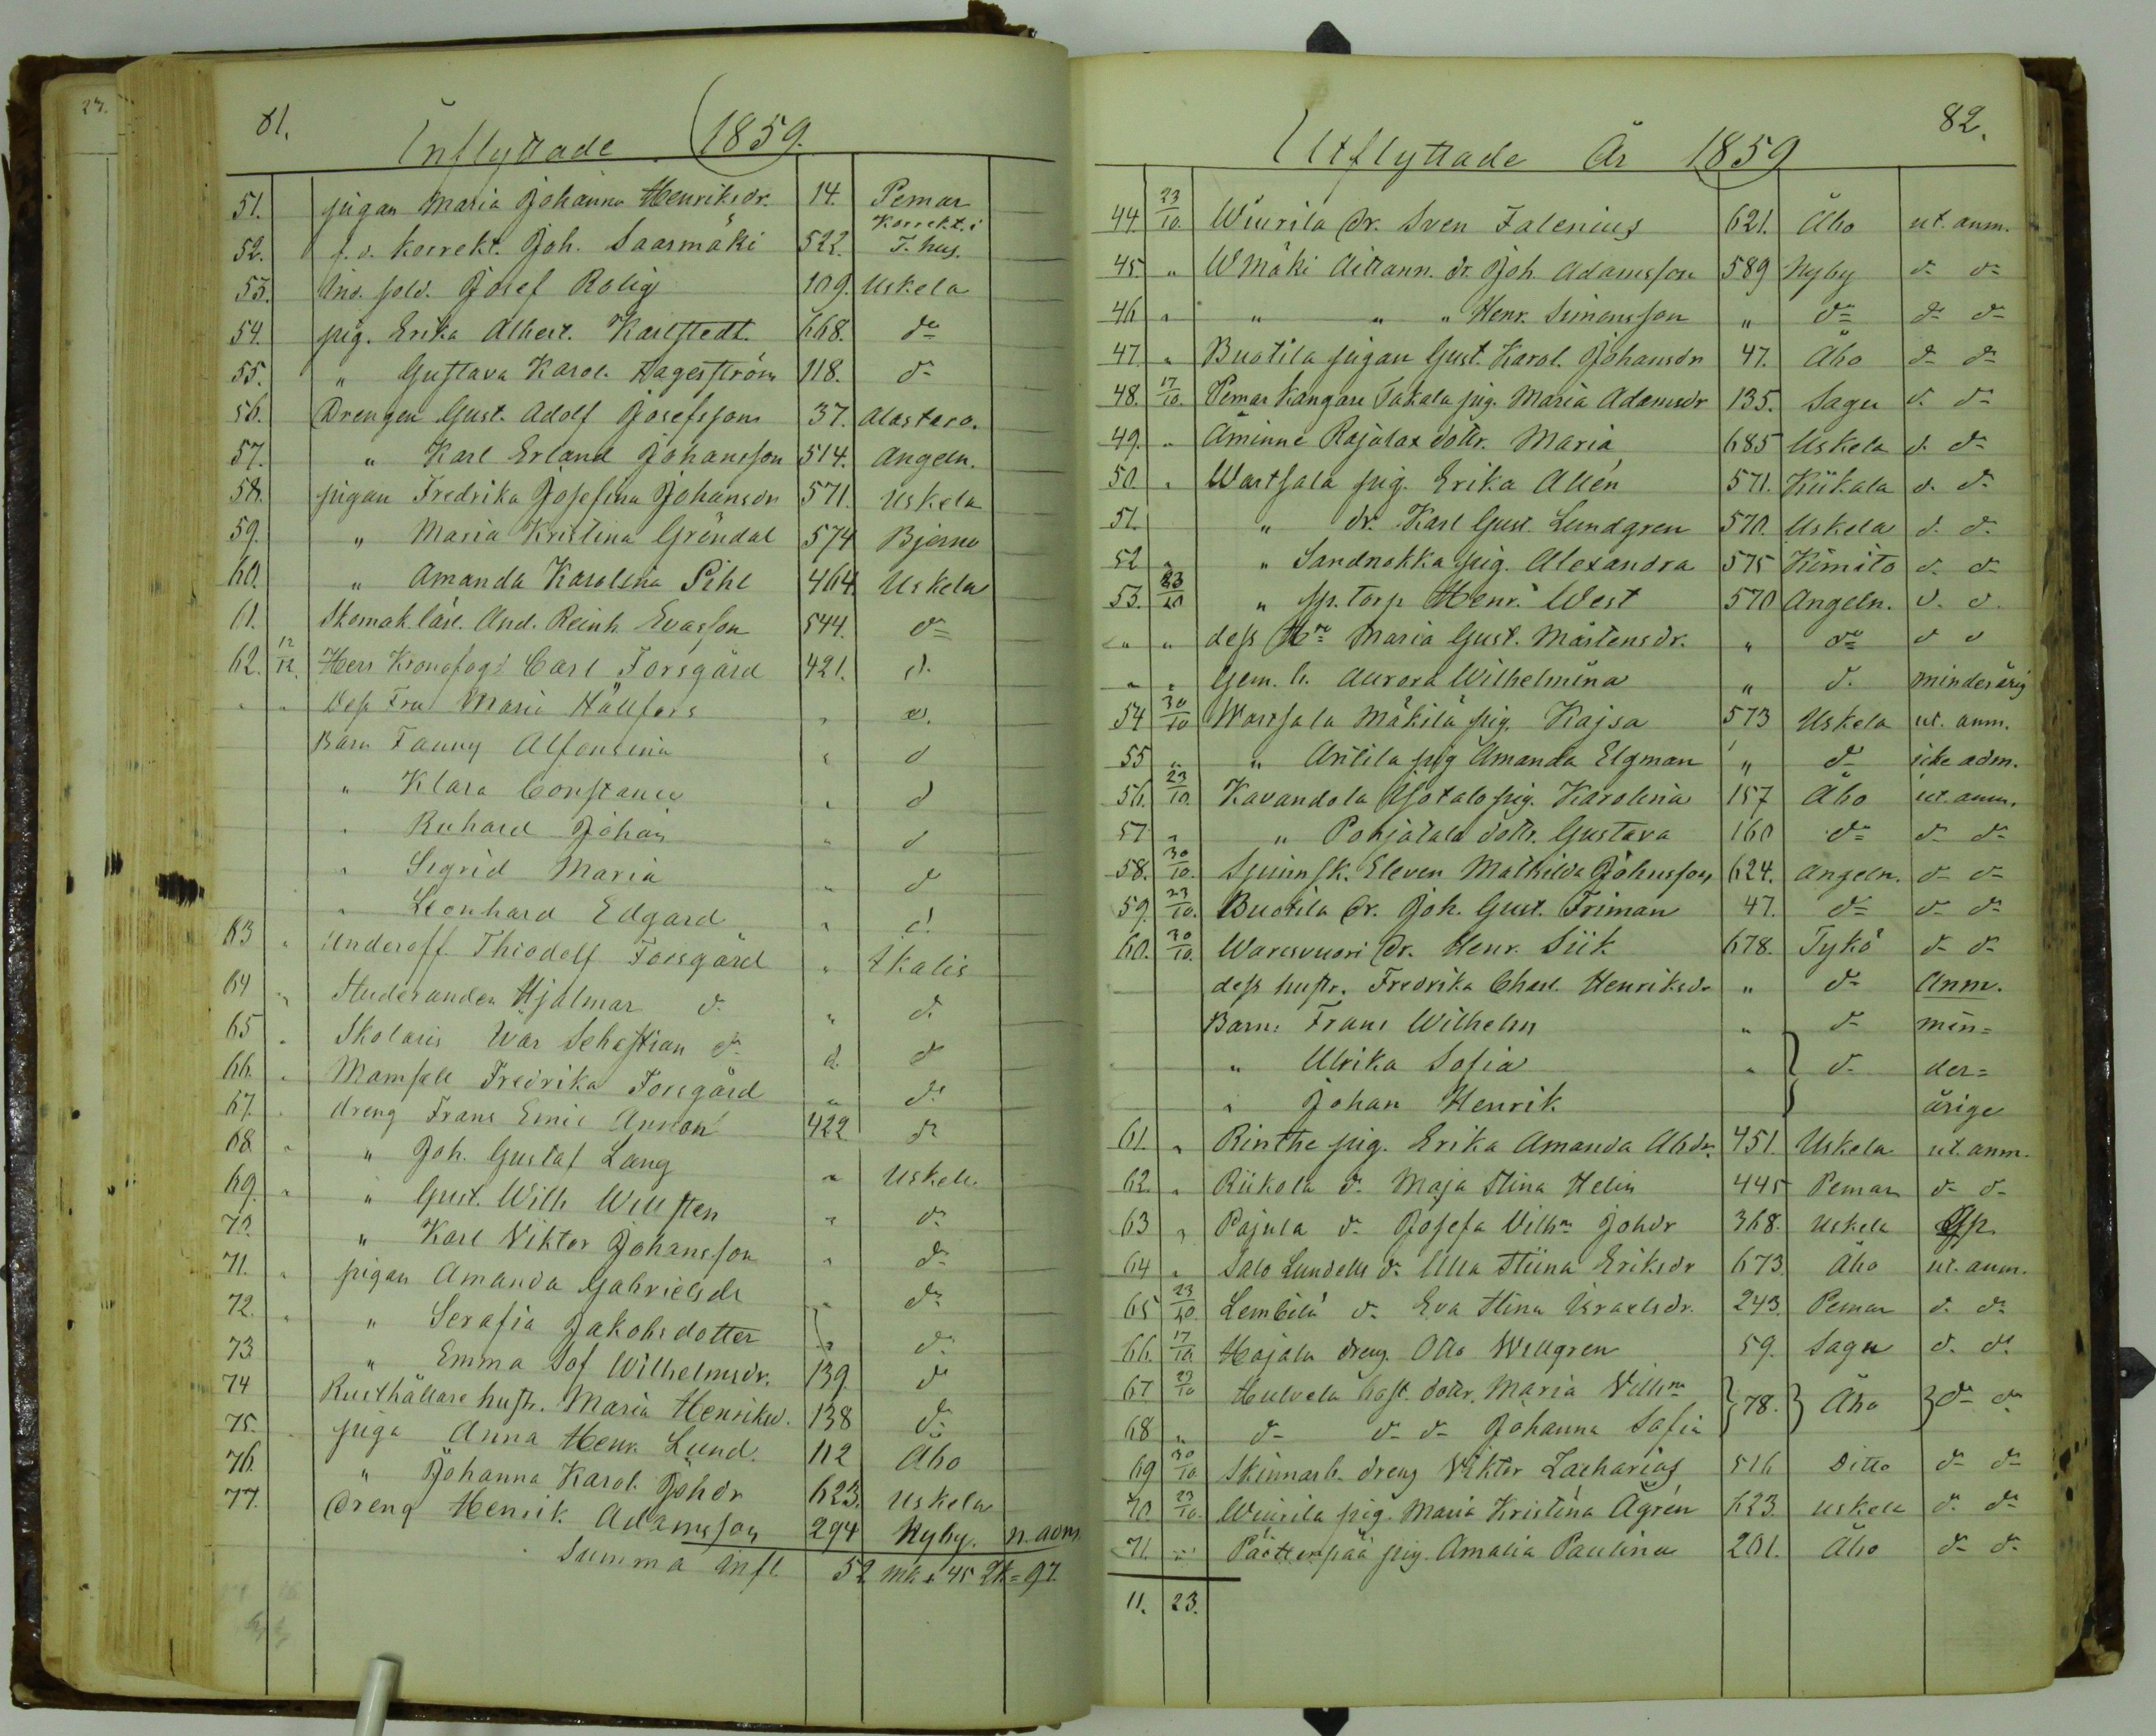 27.
81.
Inflyttade 1859.
51. pigan Maria Johanna Henriksdr. 14. Pemar
52. f. d. korrekt. Joh. Saarmäki 522. Korrekt.i T. hus.
53. Ind. sold. Josef Rolig 109. Uskela
54. pig. Erika Albert. Karlstedt 668. do
55. " Gustava Karol. Hagerström 118. do
56. Drengen Gust. Adolf Josefsson 37. Alastaro.
57. " Karl Erland Johansson 514. Angeln.
58. pigan Fredrika Josefina Johansdr 571. Uskela
59. " Maria Kristina Gröndal 574 Bjerno
60. " Amanda Karolina Pihl 464. Uskela
61. Skomak.lärl. And. Reinh. Evasson 544. do
62. 12/12. Herr Kronofogd Carl Forsgård 421. d.
" " Dess Fru Maria Hällfors " d.
Barn Fanny Alfonsina " d
" Klara Constance " d
" Richard Johan " d
" Sigrid Maria " d
" Leonhard Edgard " d
63 " Underoff. Thiodolf Forsgård " Ikalis
64 " Studeranden Hjalmar d. " d.
65 " Skolaris Ivar Sebastian d. d. d
66. " Mamsell Fredrika Forsgård " d.
67. " dreng Frans Emil 422 d
68. " " Joh. Gustaf Lang " Uskela
69. " " Gust. Wilh Willsten " d.
70. " Karl Viktor Johansson " d
71. " pigan Amanda Gabrielsdr " d
72. " " Serafia Jakobsdotter " d.
73. " Emma Sof Wilhelmsdr. 139. d
74 Rusthållare hustr. Maria Henriksd. 138 d.
75. piga Anna Henr. Lund. 112 Åbo
76. " Johanna Karol. Johdr 623. Uskela
77. Dreng Henrik Adamsson 294 Nyby. n. adm.
Summa infl. 52 mk + 45 Qk = 97.
82.
Utflyttade År 1859
44. 23/10. Wiurila dr. Sven Falenius 621. Åbo ut. anm.
45. " WMäki Aittann. dr. Joh. Adamsson 589 Nyby d. do
46 " " " " Henr. Simonsson " do do do
47. " Buotila pigan Gust. Karol. Johansdr 47. Åbo do do
48. 17/10. Pemar Kangare Takala pig. Maria Adamsdr 135. Sagu d. do
49. " Åminne Rajalax dottr. Maria 685 Uskela d. do
50. " Wartsala pig. Erika Allén 571. Kiikala d. d.
51. " dr. Karl Gust. Lundgren 570. Uskela d. d.
52 " " Sandnokka pig. Alexandra 575 Kimito d. do
53. 23/10 " sp. torp Henr. West 570 Angeln. d. d.
" " dess Hu Maria Gust. Mårtensdr. " do d d
" " Gem. b. Aurora Wilhelmina " d. minderårig
54 30/10 Wartsala Mäkilä pig. Kajsa 573 Uskela ut. anm.
55 " " Anttila pig Amanda Elgman " d icke adm.
56. 23/10. Kavandola Isotalo pig. Karolina 157 Åbo ut. anm.
57 " " Pohjatalo dottr. Gustava 160 do do do
58. 30/10. Spinnsk. Eleven Mathilda Johnsson 624. Angeln. do do
59. 23/10. Buotila dr. Joh. Gust. Friman 47. do do do
60. 30/10. Waresvuori dr. Henr. Siik 678. Tykö do do
dess hustr. Fredrika Charl. Henriksdr " do Anm.
Barn: Frans Wilhelm " do min=
" Ulrika Sofia " d. der=
" Johan Henrik årige
61. " Rinthe pig. Erika Amanda Abdr. 451. Uskela ut. anm.
62. " Riikola d. Maja Stina Helin 445 Pemar do do
63 " Pajula do Josefa Vilhna Johdr 368. Uskela
64 " Salo Lundells do Ulla Stiina Eriksdr 673. Åbo ut. anm.
65 23/10. Lembilä do Eva Stina Israelsdr. 243. Pemar d. do
66. 17/10 Hajala dreng. Otto Wellgren 59. Sagu d. do
67. 23/10 Hulvela hast. dottr. Maria Vilhna 78. Åbo do do
68 " do do do Johanna Sofia
69 30/10. Skinnarb. dreng Viktor Zacharias 516 Ditto do do
70. 23/10. Wiurila pig. Maria Kristina Ågrén 623. Uskela d. do
71. Päätterpää pig. Amalia Paulina 201. Åbo do do
11. 23.